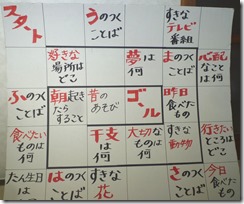 スタート
うのつく
ことば
すきな
テレビ
番組
心配
なこと
は何
好きな
場所は
どこ
夢は
何
まのつく
ことば
ふのつく
ことば
朝起き
たら
すること
昔の
あそび
ゴール
昨日
食べた
もの
食べたい
ものは
何
干支
は何
大切な
ものは
何
すきな
動物
行きたい
ところは
どこ
たん生日
は
はのつく
ことば
すきな
花
さのつく
ことば
今日
食べた
もの